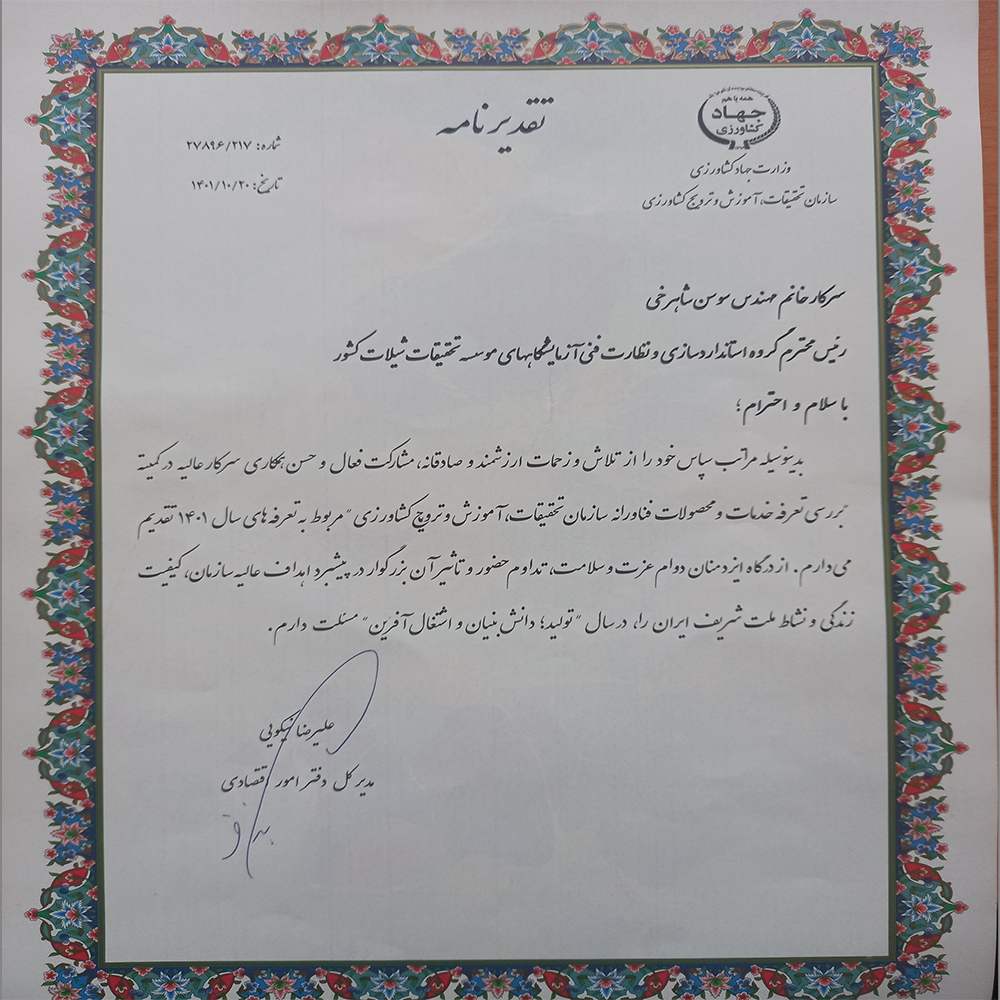 تقدیرنامه
همه با هم
جهاد
کشاورزی
وزارت جهاد کشاورزی
سازمان تحقیقات، آموزش و ترویج کشاورزی
شماره: ۲۷۸۹۶/۲۱۷
تاریخ: ۱۴۰۱/۱۰/۲۰
سرکار خانم مهندس سوسن شاهرخی
رئیس محترم گروه استانداردسازی و نظارت فنی آزمایشگاههای موسسه تحقیقات شیلات کشور
با سلام و احترام؛
بدینوسیله مراتب سپاس خود را از تلاش و زحمات ارزشمند و صادقانه، مشارکت فعال و حسن همکاری سرکار عالیه در کمیته
"بررسی تعرفه خدمات و محصولات فناورانه سازمان تحقیقات، آموزش و ترویج کشاورزی" مربوط به تعرفه های سال ۱۴۰۱ تقدیم
می دارم. از درگاه ایزد منان دوام عزت و سلامت، تداوم حضور و تاثیر آن بزرگوار در پیشبرد اهداف عالیه سازمان، کیفیت
زندگی و نشاط ملت شریف ایران را، در سال "تولید؛ دانش بنیان و اشتغال آفرین" مسئلت دارم.
علیرضا نیکویی
مدیر کل دفتر امور اقتصادی